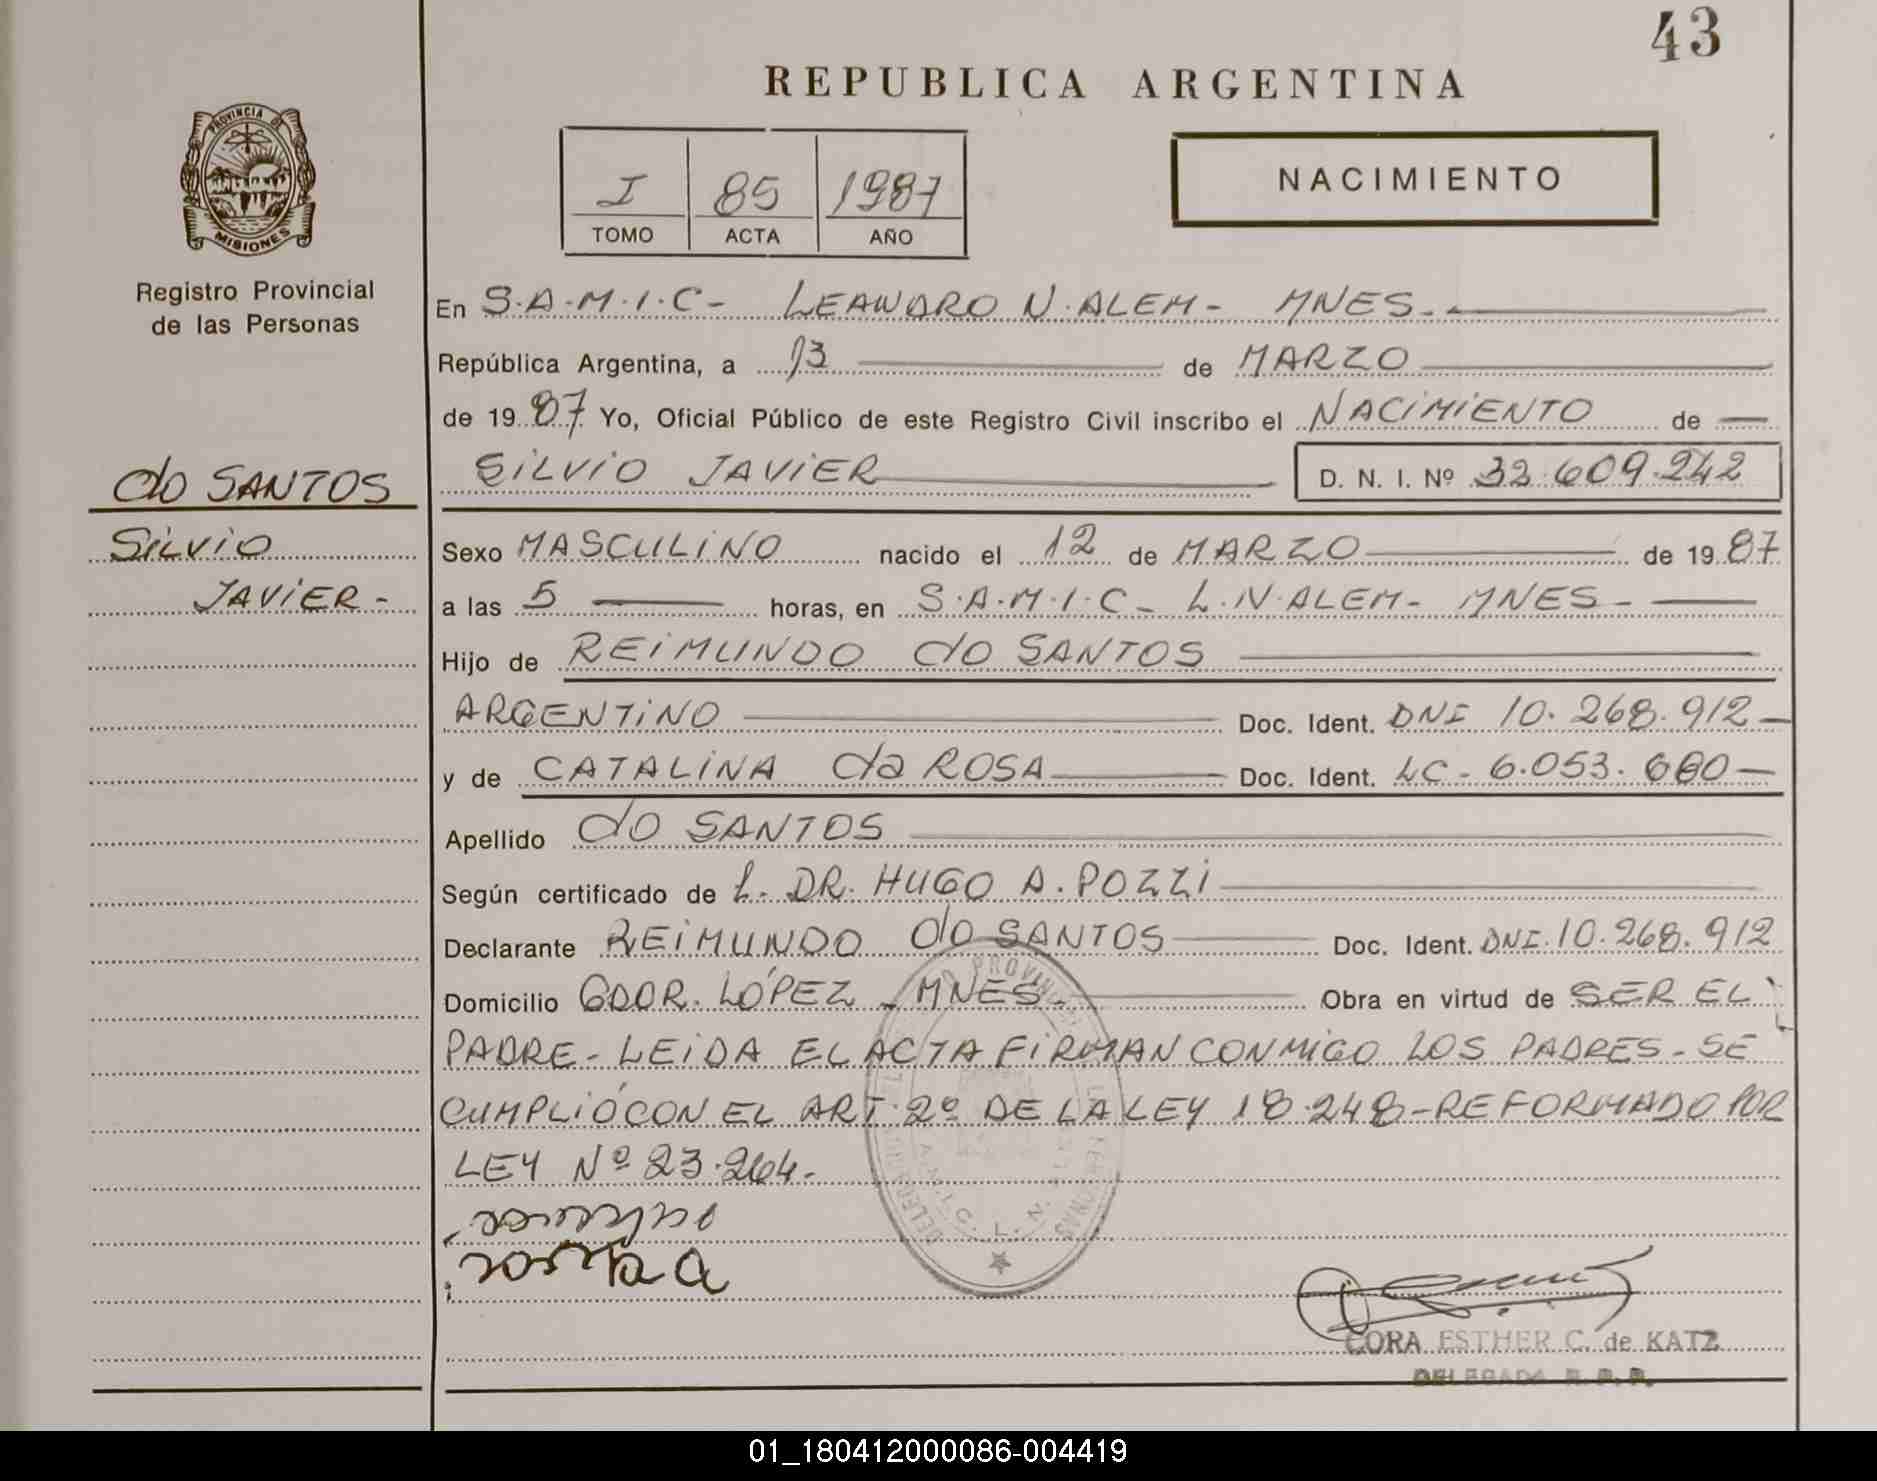 43
REPUBLICA ARGENTINA
PROVINCIA DE
MISIONES
Registro Provincial
de las Personas
I 85 1987
TOMO ACTA AÑO
NACIMIENTO
En S.A.M.I.C- LEANDRO N. ALEM- MNES.-
República Argentina, a 13 de MARZO
de 1987 Yo, Oficial Público de este Registro Civil inscribo el NACIMIENTO de
SILVIO JAVIER D. N. I. Nº 32.609.242
do SANTOS
SILVIO
JAVIER-
Sexo MASCULINO nacido el 12 de MARZO de 1987
a las 5 horas, en S.A.M.I.C- L.N.ALEM- MNES-
Hijo de REIMUNDO do SANTOS
ARGENTINO Doc. Ident. DNI 10.268.912-
y de CATALINA da ROSA Doc. Ident. LC- 6.053.660-
Apellido do SANTOS
Según certificado de L. DR. HUGO A. POZZI
Declarante REIMUNDO do SANTOS Doc. Ident. DNI.10.268.912
Domicilio GDOR. LÓPEZ - MNES- Obra en virtud de SER EL
PADRE- LEIDA EL ACTA FIRMAN CONMIGO LOS PADRES- SE
CUMPLIÓ CON EL ART. 2º DE LA LEY 18.248-REFORMADO POR
LEY Nº 23.264.-
CORA ESTHER C. de KATZ
DELEGADA R. P. P.
01_180412000086-004419